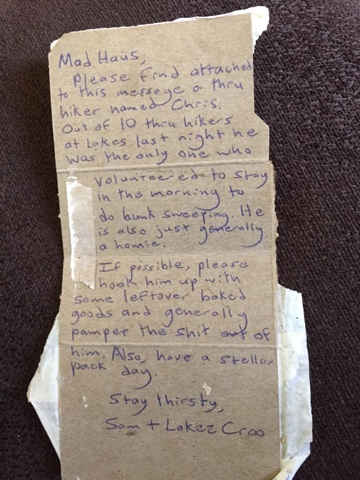 Mad Haus,
Please find attached
to this message a thru
hiker named Chris.
Out of 10 thru hikers
at Lakes last night he
was the only one who
volunteered to stay
in the morning to
do bunk sweeping. He
is also just generally
a homie.
If possible, please
hook him up with
some leftover baked
goods and generally
pamper the shit out of
him. Also, have a stellar
pack day.
Stay thirsty,
Sam + Lakez Croo